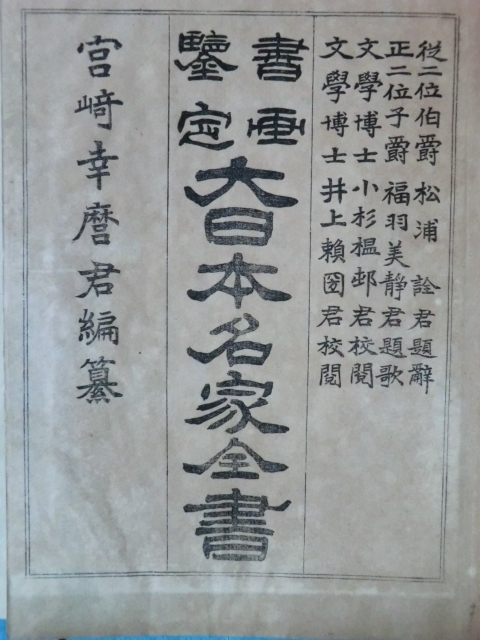 從二位伯爵松浦詮君題辭
正二位子爵福羽美靜君題歌
文學博士小杉榲邨君校閱
文學博士井上賴圀君校閱
書画
鑒定
大日本名家全書
宮﨑幸麿君編纂